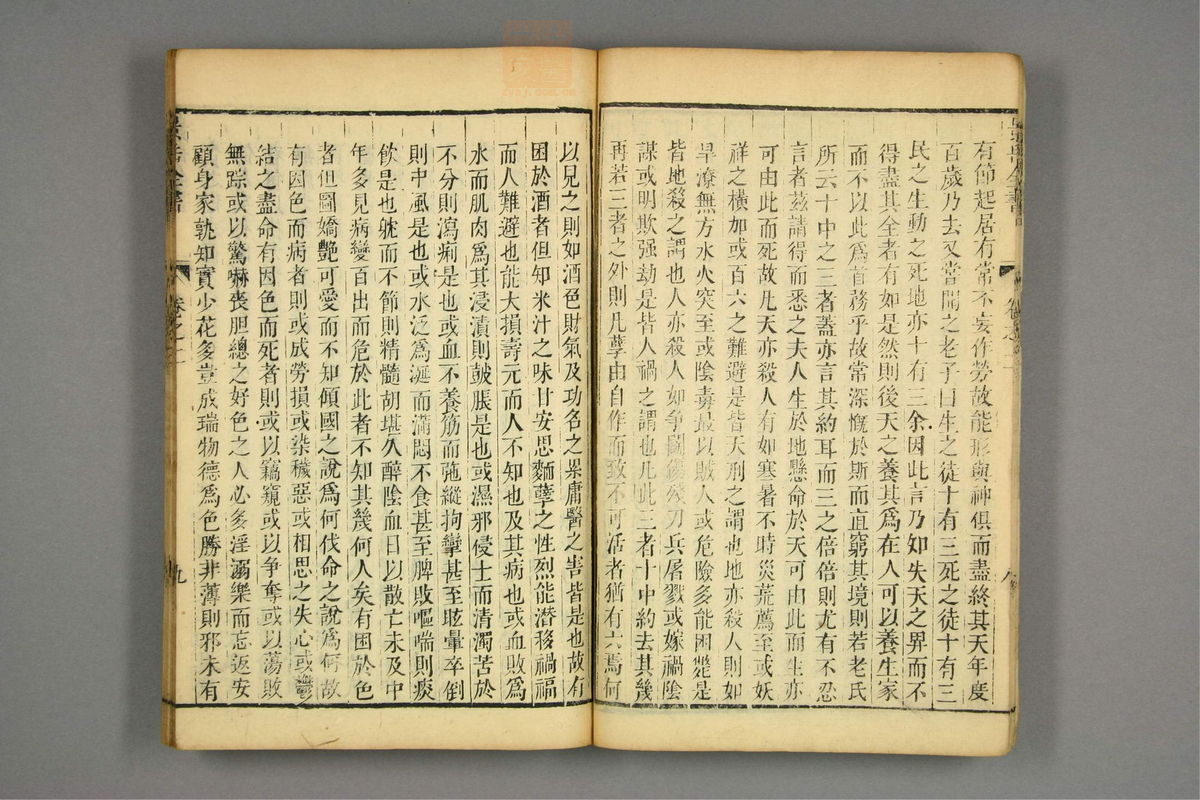 有節起居有常不妄作勞故能形與神俱而盡終其天年度
百歲乃去又嘗聞之老子曰生之徒十有三死之徒十有三
民之生動之死地亦十有三余因此言乃知失天之畀而不
得盡其全者有如是然則後天之養其為在人可以養生家
而不以此為首務乎故常深慨於斯而直窮其境則若老氏
所云十中之三者蓋亦言其約耳而三之倍倍則尤有不忍
言者茲請得而悉之夫人生於地懸命於天可由此而生亦
可由此而死故凡天亦殺人有如寒暑不時災荒薦至或妖
祥之橫加或百六之難避是皆天刑之謂也地亦殺人則如
旱潦無方水火突至或陰毒最以賊人或危險多能困斃是
皆地殺之謂也人亦殺人如爭鬬傷殘刀兵屠戮或嫁禍陰
謀或明欺强劫是皆人禍之謂也凡此三者十中約去其幾
再若三者之外則凡孽由自作而致不可活者猶有六焉何
以見之則如酒色財氣及功名之累庸醫之害皆是也故有
困於酒者但知米汁之味甘安思麯糵之性烈能潛移禍福
而人難避也能大損壽元而人不知也及其病也或血敗為
水而肌肉為其浸漬則皷脹是也或濕邪侵土而清濁苦於
不分則瀉痢是也或血不養筋而弛縱拘攣甚至眩暈卒倒
則中風是也或水泛為涎而滿悶不食甚至脾敗嘔喘則痰
飲是也躭而不節則精髓胡堪久醉陰血日以散亡未及中
年多見病變百出而危於此者不知其幾何人矣有困於色
者但圖嬌艷可愛而不知傾國之說為何伐命之說為何故
有因色而病者則或成勞損或染穢惡或相思之失心或鬱
結之盡命有因色而死者則或以竊窺或以争奪或以蕩敗
無踪或以驚嚇喪胆總之好色之人必多淫溺樂而忘返安
顧身家孰知實少花多豈成瑞物德為色勝非薄則邪未有
景岳全書
卷之二
九